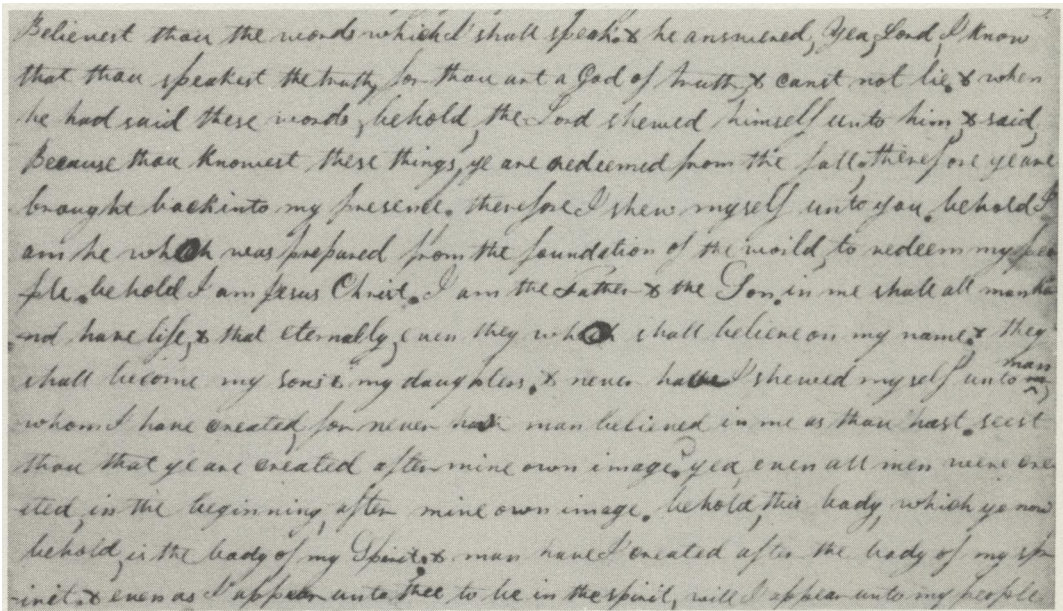 Believest thou the words which I shall speak. & he answered, Yea, Lord, I know
that thou speakest the truth, for thou art a God of truth & canst not lie. & when
he had said these words, behold, the Lord shewed himself unto him, & said,
Because thou knowest these things, ye are redeemed from the fall, therefore ye are
brought back into my presence. therefore I shew myself unto you. behold I
am he who was prepared from the foundation of the world, to redeem my peo
ple. behold I am Jesus Christ. I am the Father & the Son. in me shall all manki
-nd have life, & that eternally, even they who shall believe on my name. & they
shall become my sons & my daughters. & never have I shewed myself unto man
whom I have created, for never has man believed in me as thou hast. seest
thou that ye are created after mine own image? yea, even all men were cre
ated, in the beginning, after mine own image. behold, this body, which ye now
behold, is the body of my Spirit. & man have I created after the body of my sp
-irit. & even as I appear unto thee to be in the spirit, will I appear unto my people